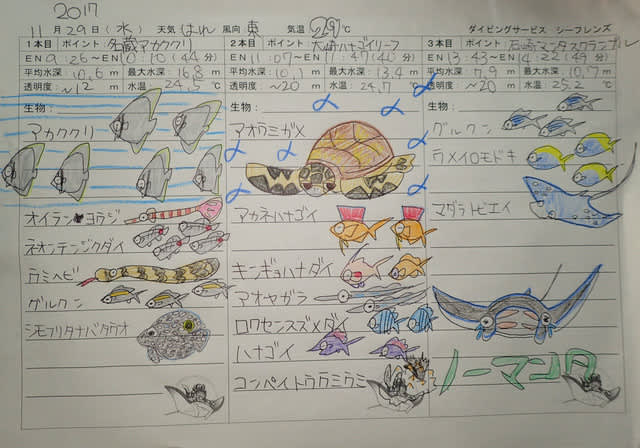 2017
11月29日(水) 天気 はれ 風向 東 気温 29℃ ダイビングサービス シーフレンズ
1本目 ポイント 名蔵アカククリ
EN 9:26 ~ EX 10:10 (44分)
平均水深 10.6m 最大水深 16.8m
透明度 ~12m 水温 24.5℃
生物:
アカククリ
オイランヨウジ
ネオンテンジクダイ
ウミヘビ
グルクン
シモフリタナバタウオ
2本目 ポイント 大崎ハナゴイリーフ
EN 11:07 ~ EX 11:47 (40分)
平均水深 10.1m 最大水深 13.4m
透明度 ~20m 水温 24.7℃
生物:
アオウミガメ
アカネハナゴイ
キンギョハナダイ
アオヤガラ
ロクセンスズメダイ
ハナゴイ
コンペイトウウミウシ
3本目 ポイント 石崎マンタスクランブル
EN 13:43 ~ EX 14:22 (49分)
平均水深 7.9m 最大水深 10.7m
透明度 ~20m 水温 25.2℃
生物:
グルクン
ウメイロモドキ
マダラトビエイ
ノーマンタ